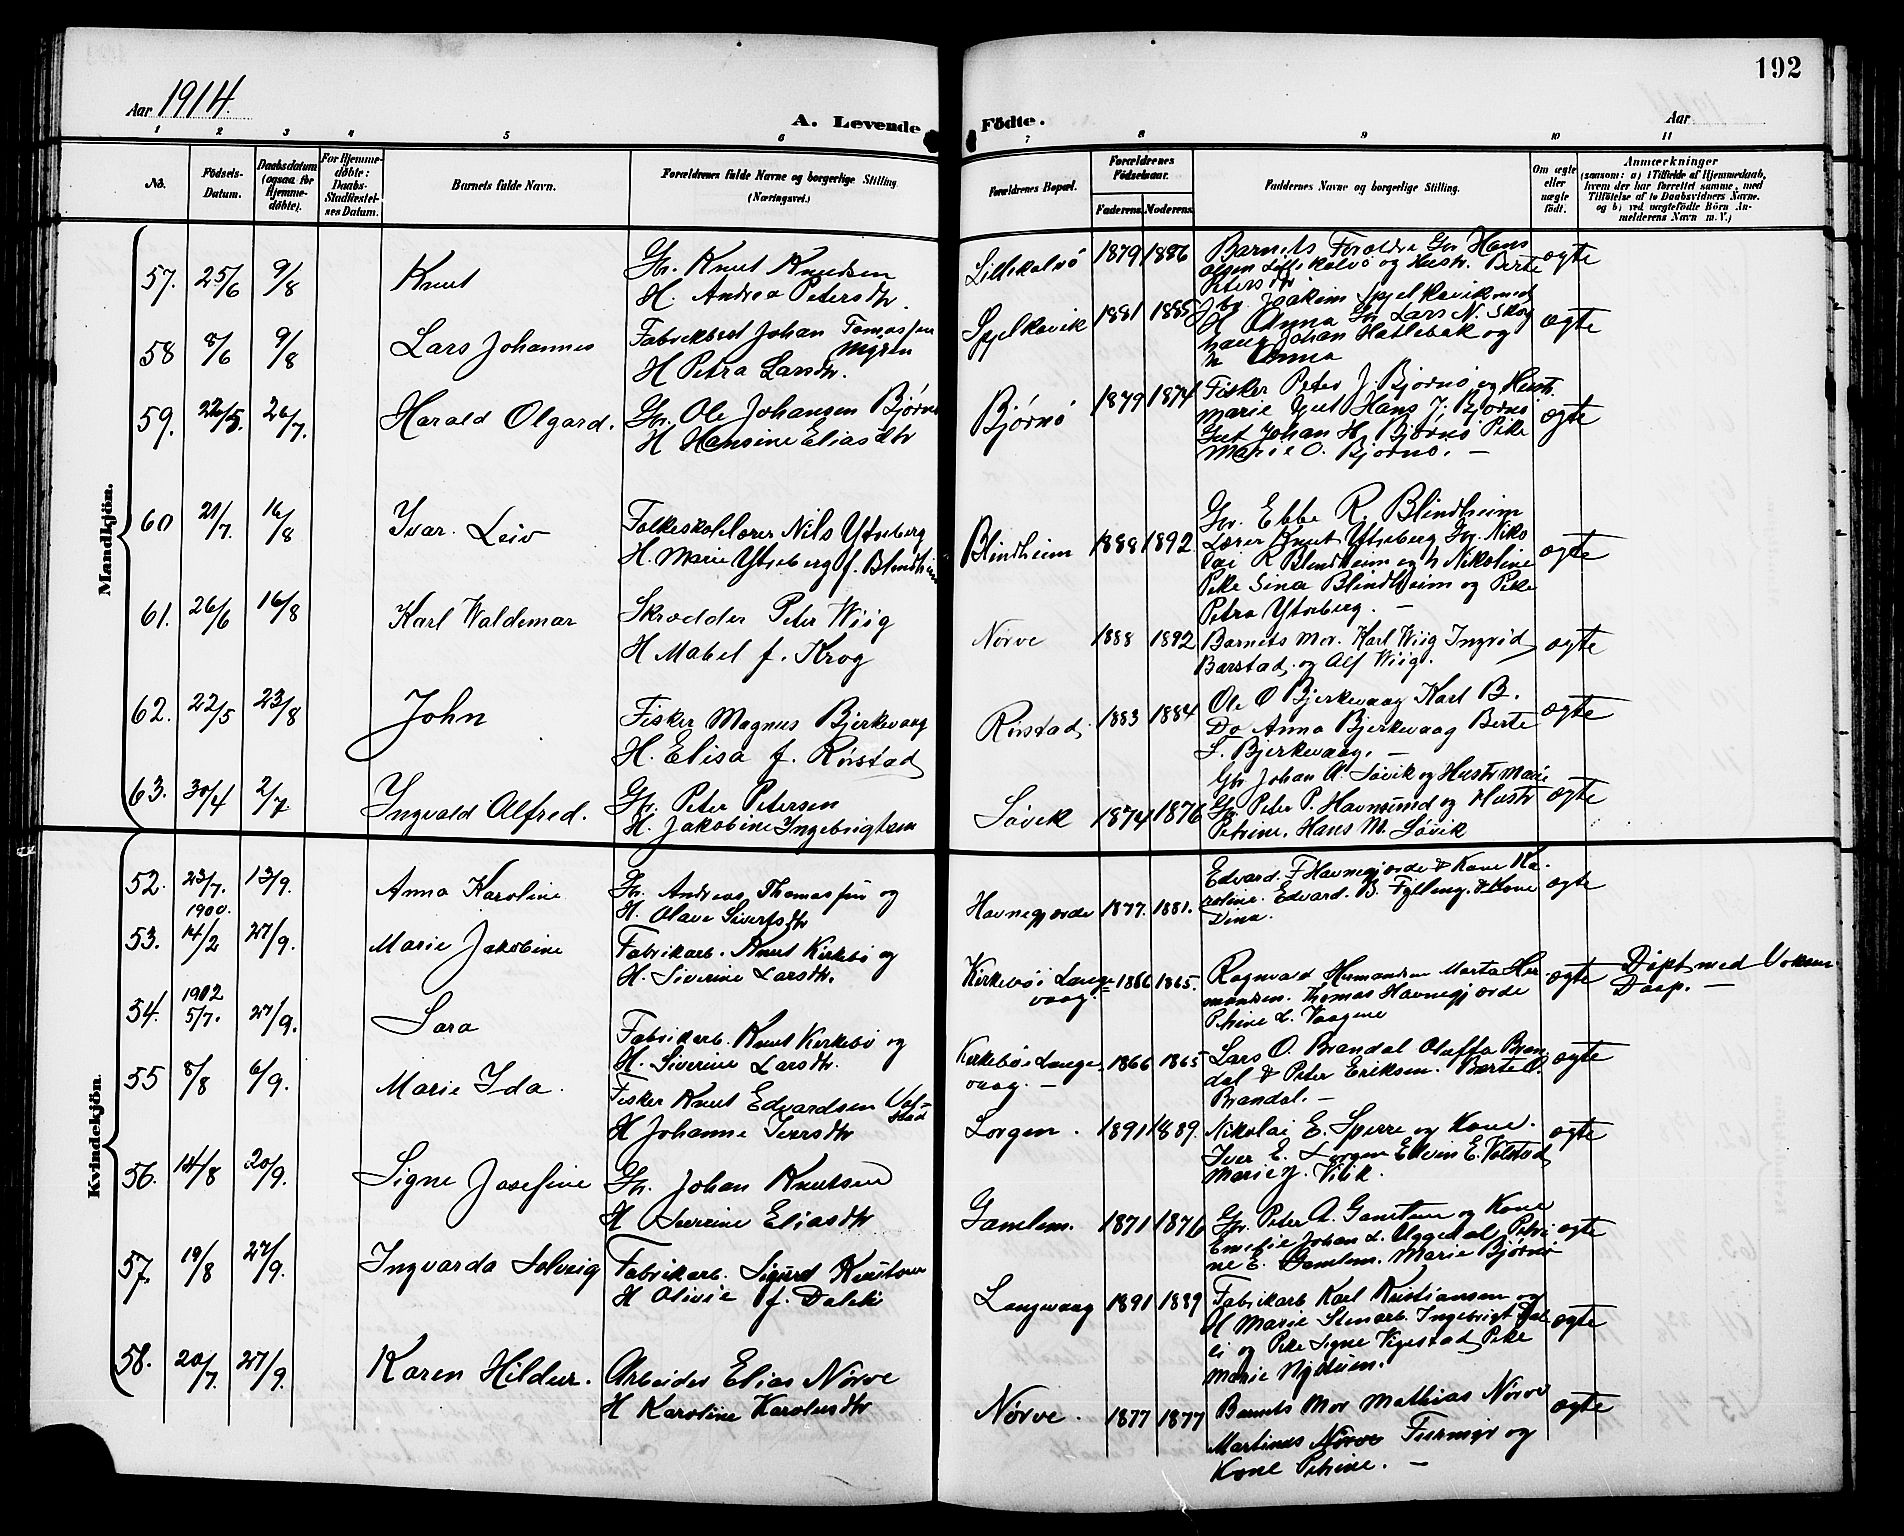 192
Aar 1914.
A. Levende Födte.
Aar
1 2 3 4 5 6 7 8 9 10 11
No.
Födsels-Datum.
Daabsdatum (ogsaa for Hjemme-døbte).
For Hjemme-døbte: Daabs-Stadfæstel-ses Datum.
Barnets fulde Navn.
Forældrenes fulde Navne og borgerlige Stilling (Næringsvei.)
Forældrenes Bopæl.
Forældrenes Födselsaar.
Faderens. Moderens.
Faddernes Navne og borgerlige Stilling.
Om ægte eller uægte født.
Anmærkninger
(saasom: a) i Tilfælde af Hjemmedaab, hvem der har forrettet samme, med Tilföielse af to Daabsvidners Navne. og b) ved uægtefödte Börn An-melderens Navn m. V.)
Mandkjön.
57. 25/6 9/8 Knut
Gbr. Knut Knudsen
H. Andrea Petersdtr.
Lillekalvø 1879 1886
Barnets Foraldre Gbr Hans
Olsen Lillekalvø og Hustr. Berte
Petersdtr
ægte
58 8/6 9/8 Lars Johannes
Fabrikbest Johan Tomassen
Myren
H Petra Larsdtr.
Spjelkavik 1881 1885
Gbr. Joakim Spjelkavik med
H Anna Gbr Lars N. Skog
haug Johan Hatlebak og
h Anna
ægte
59. 22/5. 26/7 Harald Olgard.
Gbr. Ole Johansen Bjørnø
H Hansine Eliasdtr
Bjørnø 1879 1874
Fisker Peter J. Bjørnø og Hustr
Marie Gut Hans J. Bjørnø
Gut Johan H. Bjørnø Pike
Marie O. Bjørnø. —
ægte
60 21/7. 16/8 Ivar Leiv
Folkeskolelærer Nils Ytreberg
H. Marie Ytreberg f. Blindheim
Blindheim 1888 1892
Gbr. Ebbe R. Blindheim
Lærer Knut Ytreberg Gbr. Niko
lai R Blindheim og h Nikoline
Pike Sina Blindheim og Pike
Petra Ytreberg. —
ægte
61. 26/6 16/8 Karl Waldemar
Skrædder Peter Wiig
H Mabel f. Krog
Nørve 1888 1892
Barnets Mor. Karl Wiig Ingrid
Barstad, og Alf Wiig.
ægte
62. 22/5 23/8 John
Fisker Magnus Bjerkevaag
H. Elisa f. Rørstad
Rørstad 1883 1884
Ole O Bjerkevaag Karl B.
Do Anna Bjerkevaag Berte
L. Bjerkevaag. —
ægte
63. 30/4 2/7 Ingvald Alfred.
Gbr. Peter Petersen
H. Jakobine Ingebrigtsen
Søvik 1874 1876
Gbr Johan A. Søvik og Hustr Marie
Gbr Peter P. Havnsund og Hustr
Petrine, Hans M. Søvik
ægte
Kvindekjön.
52. 23/7. 13/9. Anna Karoline
Gbr. Andreas Thomassen og
H. Olave Sivertsdtr
Havnegjærde 1877. 1881.
Edvard F Havnegjærde & Kone Ka-
roline. Edvard B. Fylling. & Kone
Dina.
ægte
53. 1900. 14/2 27/9. Marie Jakobine
Fabrikarb. Knut Kirkebø og
H. Siverine Larsdtr.
Kirkebø i Lange-
vaag. 1866 1865.
Ragnvald Hermansen Marta Her
mansen. Thomas Havnegjærde
Petrine L. Vaagene
ægte
Døpt med Voksen
Daap. —
54. 1902 5/7. 27/9. Sara
Fabrikarb. Knut Kirkebø og
H. Siverine Larsdtr.
Kirkebø i Lange
vaag. — 1866 1865
Lars O. Brandal Oluffa Bran
dal & Peter Eriksen. Berte O.
Brandal. —
ægte
55 8/8 6/9. Marie Ida.
Fisker Knut Edvardsen Vol-
stad
H Johanne Iversdtr
Lorgen. 1891 1889.
Nikolai E. Sperre og Kone.
Iver E. Lorgen Edvin E. Volstad
Marie J. Vilik.
ægte
56. 14/8 20/9. Signe Josefine
Gbr. Johan Knutsen
H Severine Eliasdtr
Gamlem. 1871 1876
Gbr. Peter A. Gamlem og Kone
Emelie Johan L. Uggedal Petri
ne E. Gamlem. Marie Bjørnø
ægte
57. 19/8 27/9. Ingvarda Solveig
Fabrikarb. Sigurd Knutsen
H Olivie f. Dalei
Langevaag 1891 1889
Fabrikarb Karl Kristiansen og
H Marie Stenarb. Ingebrigt Dal
ei og Pike Signe Vegestad Pike
Marie Mydium.
ægte
58. 20/7 27/9. Karen Hildur.
Arbeider Elias Nørve
H Karoline Karolusdtr
Nørve. 1877 1877
Barnets Mor Mathias Nørve
Martinus Nørve Furmyr og
Kone Petrine. —
ægte